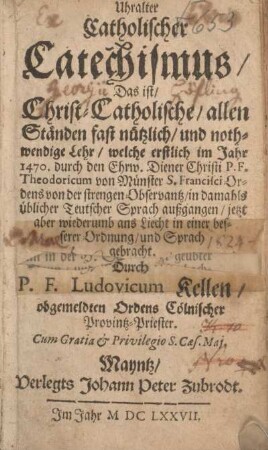 Uhralter
Catholischer
Catechismus/
Das ist/
Christ-Catholische/ allen
Ständen fast nützlich/ und noth-
wendige Lehr/ welche erstlich im Jahr
1470. durch den Ehrw. Diener Christi P. F.
Theodoricum von Münster S. Francisci Or-
dens von der strengen Observantz/ in damahls
üblicher Teutscher Sprach außgangen/ jetzt
aber wiederumb ans Liecht in einer bes-
serer Ordnung/ und Sprach
gebracht.
Durch
P. F. Ludovicum Kellen/
obgemeldten Ordens Cölnischer
Provintz-Priester.
Cum Gratia & Privilegio S. Cæs. Maj.
Mayntz/
Verlegts Johann Peter Zubrodt.
Im Jahr M DC LXXVII.